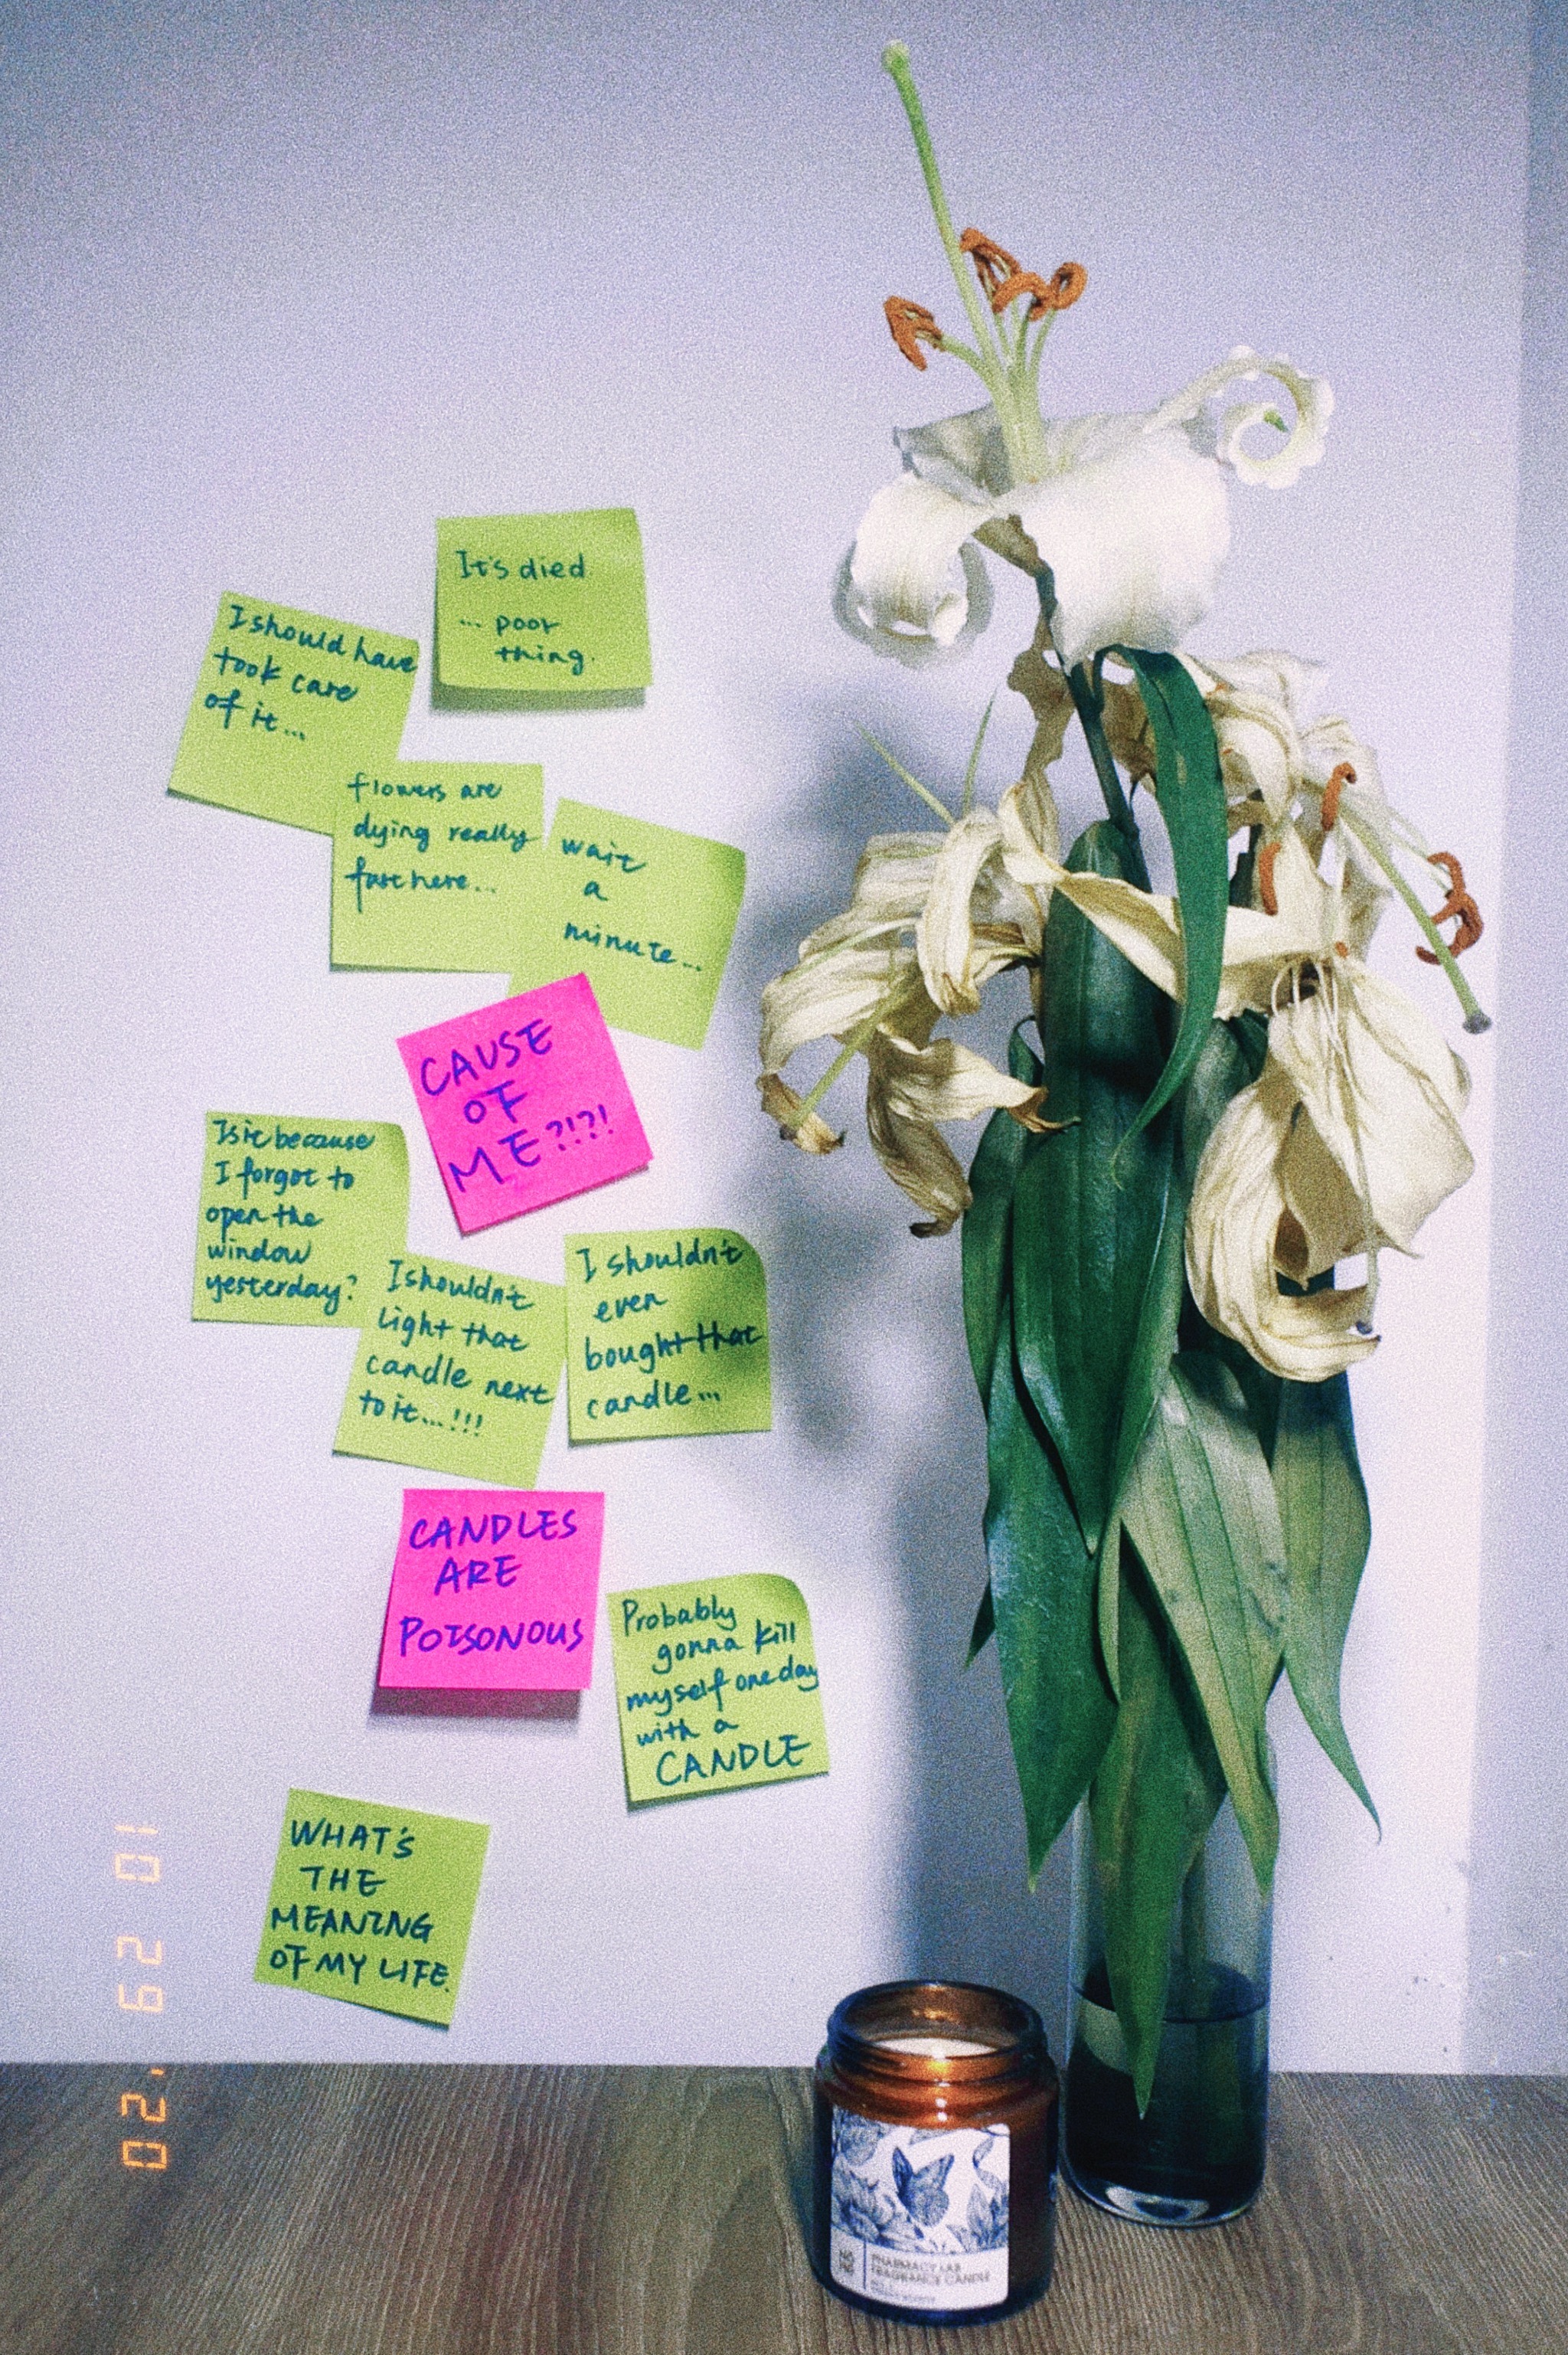 It's died
... poor
thing.
I should have
took care
of it...
flowers are
dying really
fast here...
wait
a
minute...
CAUSE
OF
ME?!?!
Is it because
I forgot to
open the
window
yesterday?
I shouldn't
light that
candle next
to it...!!!
I shouldn't
even
bought that
candle...
CANDLES
ARE
POISONOUS
Probably
gonna kill
myself one day
with a
CANDLE
WHAT'S
THE
MEANING
OF MY LIFE.
10 29 '20
PHARMACY LAB
FRAGRANCE CANDLE